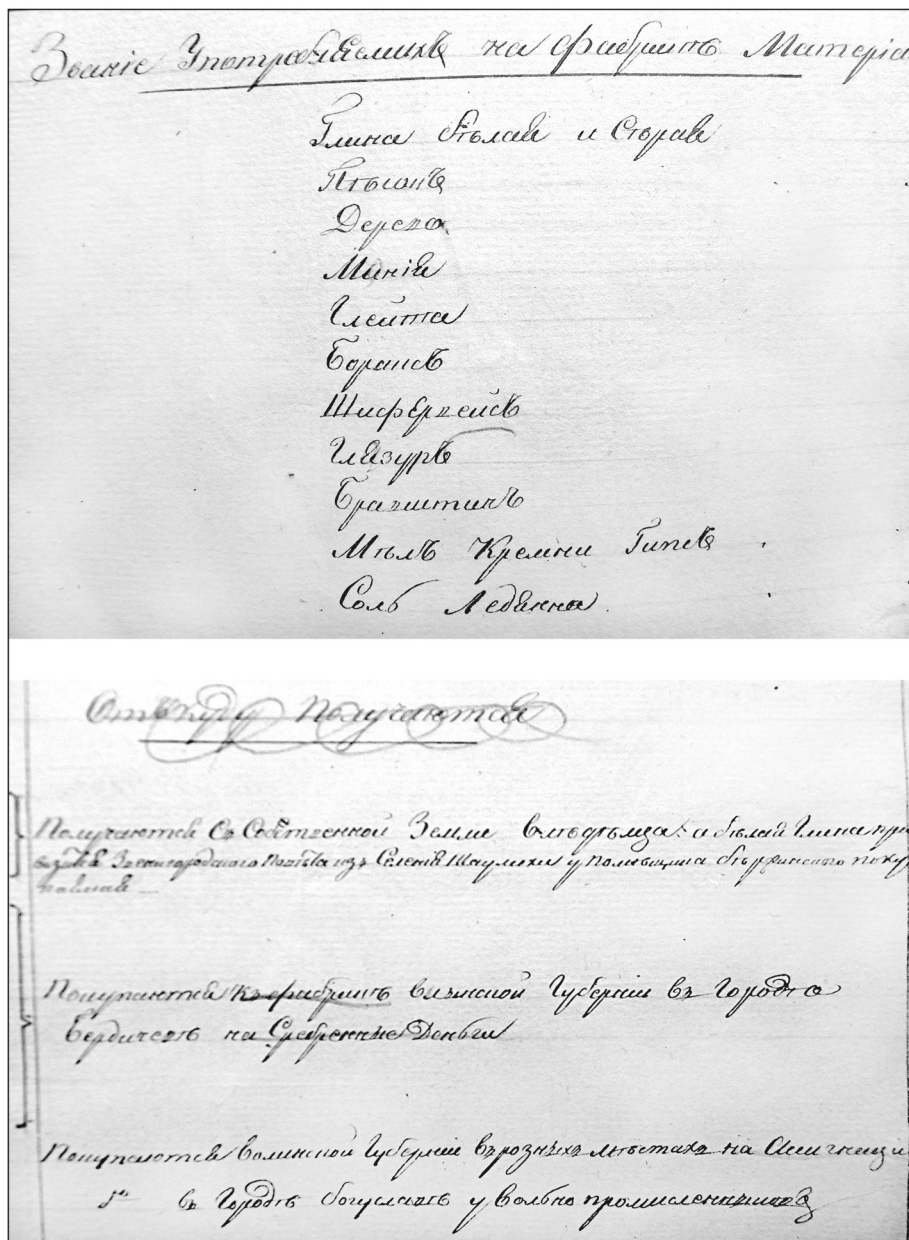 Званіе Употребляемихъ на фабрикѣ Матеріа
Глина бѣлая и Сѣрая
Пѣсокъ
Дерево
Минія
Глейта
Бораксъ
Шифервейсъ
Глазуръ
Браунштинъ
Мѣлъ Кремни Гипсъ
Соль Ледянна
Отъкуду Получаются
Получаются Съ Собственной Земли а бѣлая Глина при
Звенигородского Повѣта изъ Селенія Шаулихи у помѣщика
Покупаются къ фабрикѣ Волинской Губерніи въ Городѣ
Бердичевѣ на Сребренные Деньги
Покупаются Волинской Губерніи въ розныхъ мѣстахъ на Ассигнаціи
въ Городѣ Богуславѣ у Вольно промисленниковъ